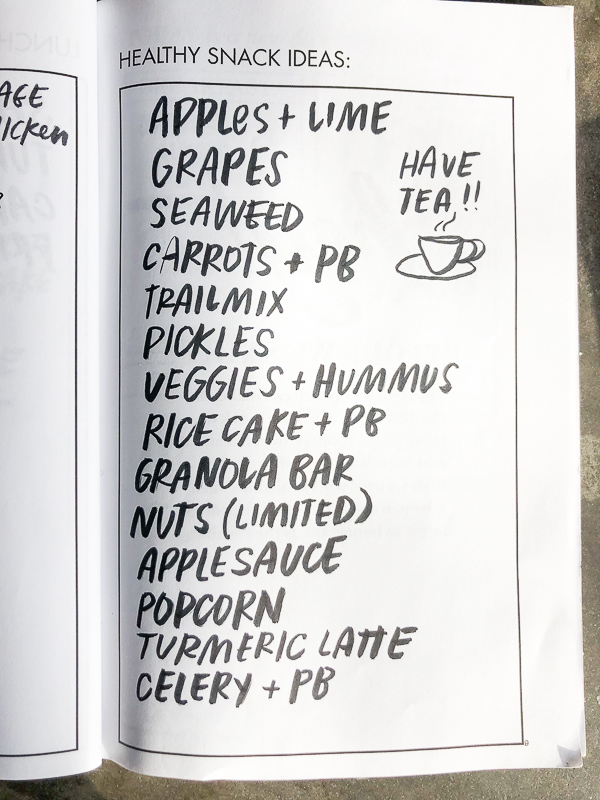 HEALTHY SNACK IDEAS:
AGE
hicken
APPLeS + LIME
GRAPES
SEAWEED
CARROTS + PB
TRAILMIX
PICKLES
VEGGIES + HUMMUS
RICE CAKE + PB
GRANOLA BAR
NUTS (LIMITED)
APPLESAUCE
POPCORN
TURMERIC LATTE
CELERY + PB
HAVE
TEA!!